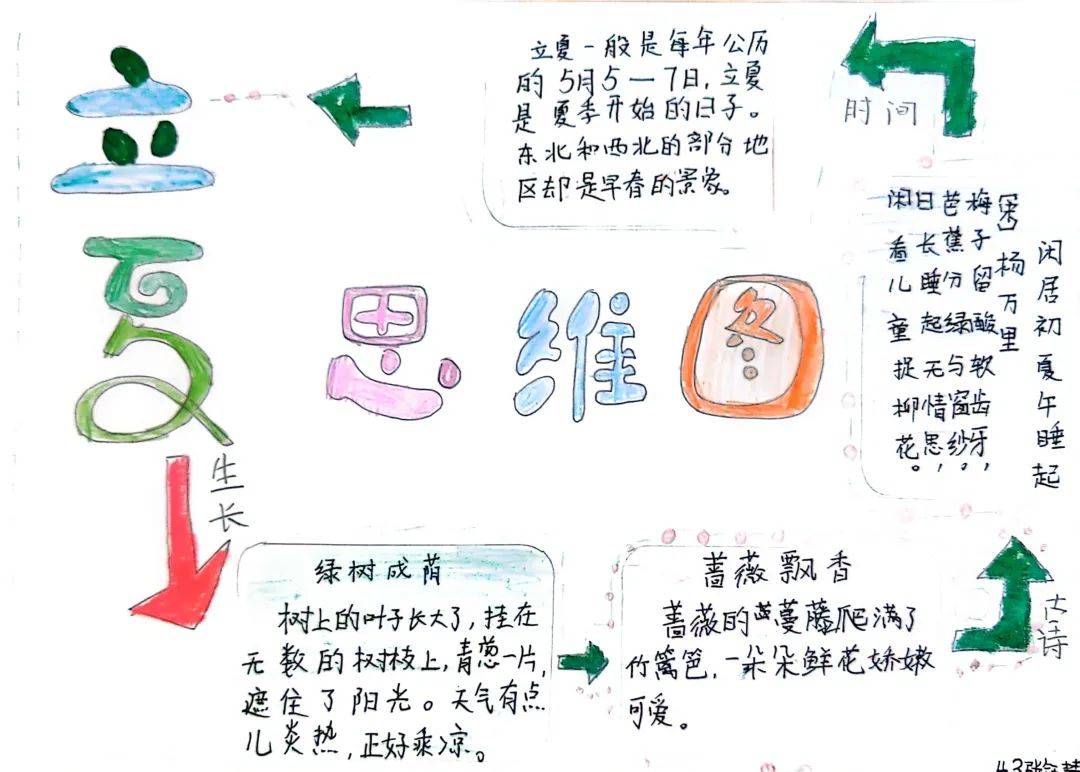 立夏
思维图
立夏一般是每年公历
的5月5—7日,立夏
是夏季开始的日子。
东北和西北的部分地
区却是早春的景象。
时间
生长
绿树成荫
树上的叶子长大了,挂在
无数的树枝上,青葱一片,
遮住了阳光。天气有点
儿炎热,正好乘凉。
蔷薇飘香
蔷薇的蔓藤爬满了
竹篱笆,一朵朵鲜花娇嫩
可爱。
古诗
闲居初夏午睡起
[宋]杨万里
梅子留酸软齿牙,
芭蕉分绿与窗纱。
日长睡起无情思,
闲看儿童捉柳花。